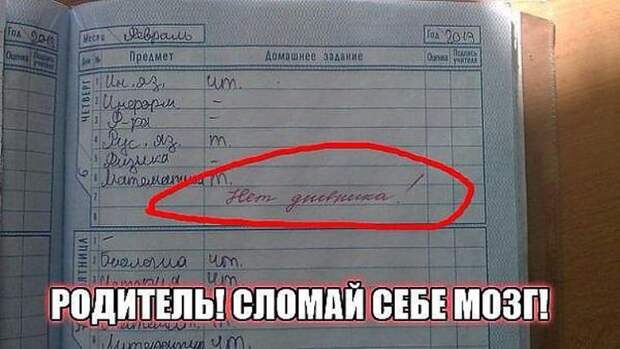 Год 2013 Месяц Февраль Год 2013
Оценка Подпись учителя Дни № Предмет Домашнее задание Оценка Подпись учителя
ЧЕТВЕРГ
6
1 Ин. яз. чт.
2 Информ –
3 Ф-ра –
4 Рус. яз. т.
5 Физика –
6 Математика т.
7 Нет дневника!
8
ПЯТНИЦА
1 –
Биология чт.
История чт.
РОДИТЕЛЬ! СЛОМАЙ СЕБЕ МОЗГ!
Литература чт.